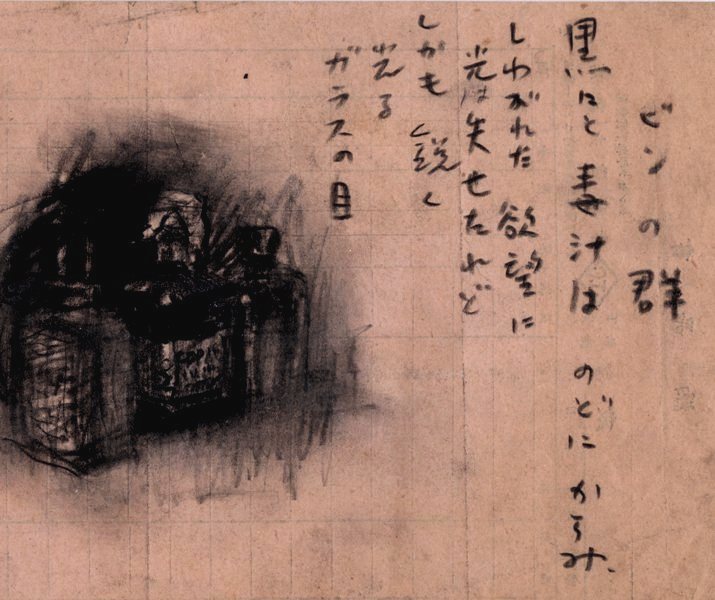 ビンの群
黒〻と 毒汁は のどに からみ、
しわがれた 欲望に
光は失せたれど
しかも 鋭く
光る
ガラスの目